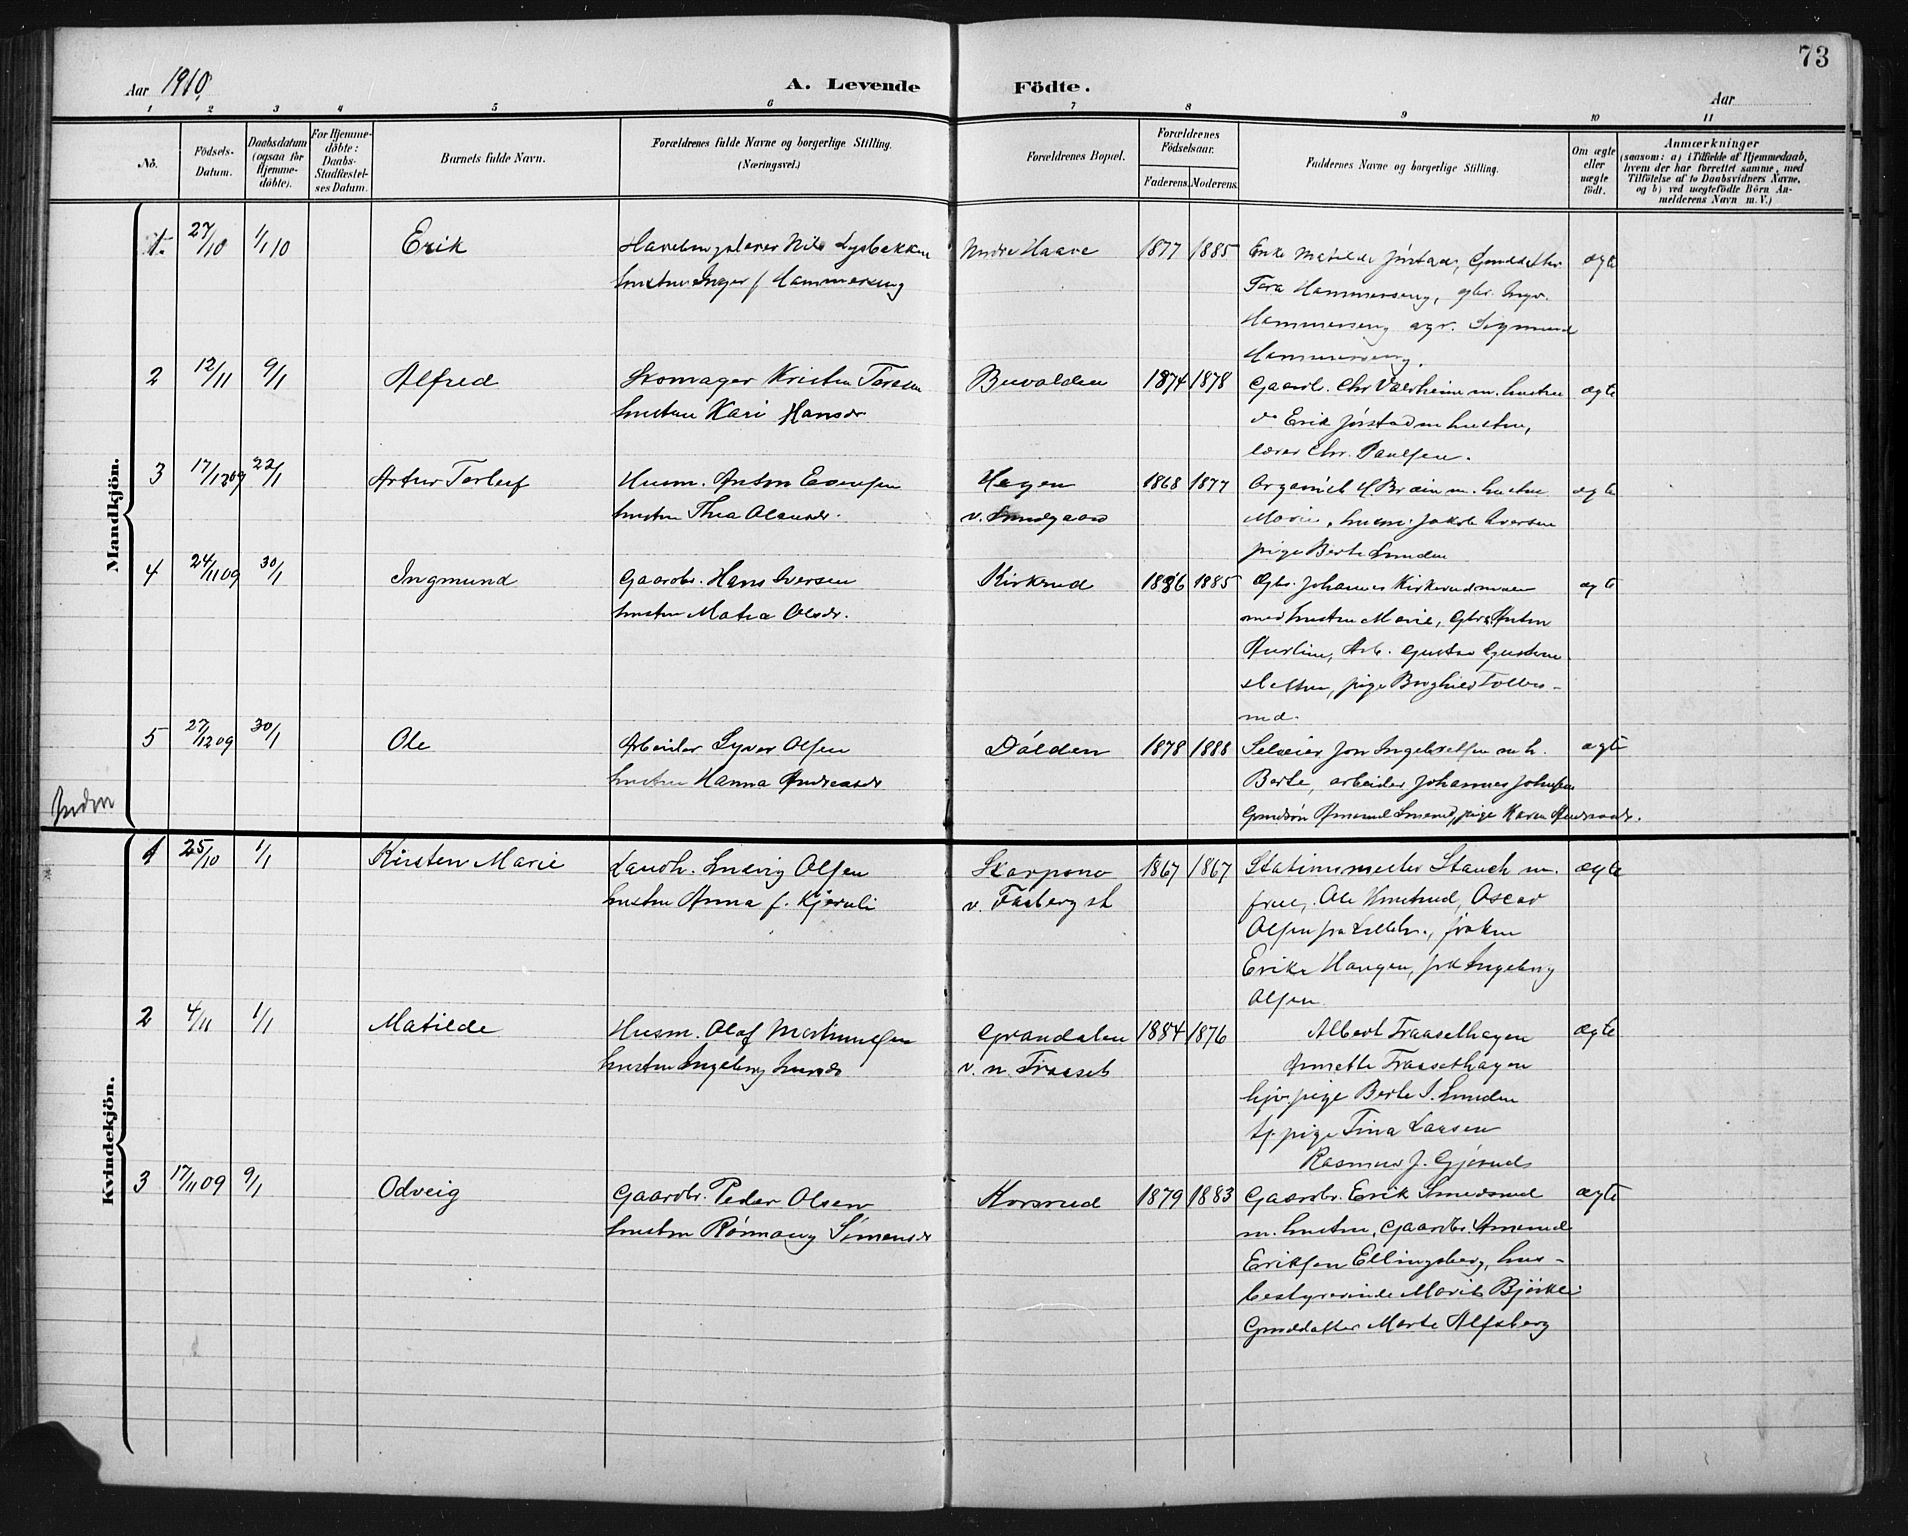 73
Aar 1910.
A. Levende Födte.
Aar
1 2 3 4 5 6 7 8 9 10 11
No.
Födsels-Datum.
Daabsdatum (ogsaa for Hjemme-döbte).
For Hjemme-döbte: Daabs-Stadfæstel-ses Datum.
Barnets fulde Navn.
Forældrenes fulde Navne og borgerlige Stilling.
(Næringsvei.)
Forældrenes Bopæl.
Forældrenes Födselsaar.
Faderens. Moderens.
Faddernes Navne og borgerlige Stilling.
Om ægte eller uægte födt.
Anmærkninger
(saasom: a) i Tilfælde af Hjemmedaab,
hvem der har forrettet samme, med
Tilföielse af to Daabsvidners Navne,
og b) ved uegtefödte Börn An-
melderens Navn m. V.)
Mandkjön.
1. 27/10 1/1 10 Erik
Nils Lysbakken
hustru Inger f. Hammerseng
Nordre Haave
1877 1885
Enke Matilde Jørstad, Gaarddatter
Tora Hammerseng, gbr. Ingv.
Hammerseng agr. Sigmund
Hammerseng.
ægte
2 12/11 9/1 Alfred
Skomager Kristen Torsen
hustru Kari Hansdr.
1874 1878
Gaardb. Chr Valdheim m. hustru
do Erik Jørstad m hustru,
lærer Chr. Paulsen.
ægte
3 17/12 09 22/1 Artur Torleif
Husm. Anton Evensen
hustru Thea Olausdr.
Hagen
v. Smidgaard
1868 1877
Organist H Bræin m. hustru
Marie, husm. Jakob Iversen
pige Berte Lunden
ægte
4 24/11 09 30/1 Ingmund
Gaardbr. Hans Iversen
hustru Matea Olsdr.
Kirkerud
1886 1885
Gbr. Johannes Kirkerudmoen
med hustru Marie, Gbrs. Anton
Aurlien, Arb. Gustav
pige Borghild Tollers-
rud.
ægte
5 27/12 09 30/1 Ole
Arbeider Syver Olsen
hustru Hanna Andreasdr
Dölden
1878 1888
Selveier Jon Ingebretsen m. h.
Berte, arbeider Johannes Johnsen
Gaardsön Amund Smerud, pige Karen Andreasdr.
ægte
Kvindekjön.
1 25/10 1/1 Kirsten Marie
Landh. Ludvig Olsen
hustru Anna f. Kjørnli
Skarpsno
v. Faaberg st
1867 1867
Stationsmester Stauch m.
frue, Ole Hustrud, Oscar
Olsen fra Lilleh., frøken
Erika Haugen, frk Ingeborg
Olsen
ægte
2 4/11 1/1 Matilde
Husm. Olaf Martinusen
hustru Ingeborg
Grandalen
v. n. Traaset
1884 1876
Albert Traasethagen
Annette Traasethagen
pige Berte J. Lunden
tj. pige Tina Larsen
Rasmus J. Gjørud
ægte
3 17/11 09 9/1 Odveig
Gaardbr. Peder Olsen
hustru Rønnaug Simensdr
Korsrud
1879 1883
Gaardbr. Erik Smedsrud
m. hustru, Gaardbr. Amund
Eriksen Ellingsberg, hus-
bestyrerinde Marit Bjørkli
Gaarddatter Marte Alfsberg
ægte